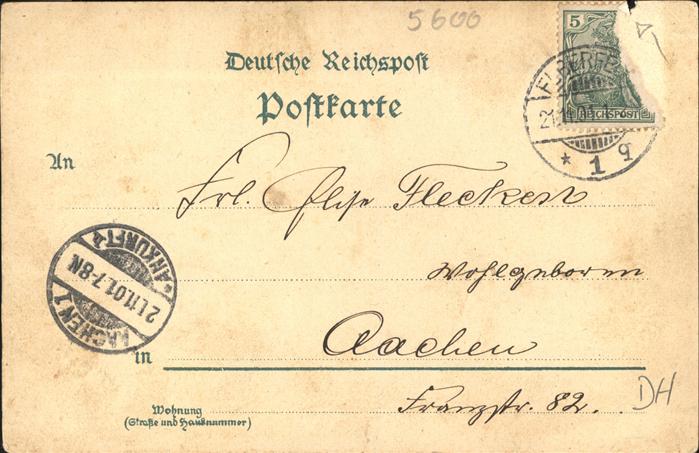 5600
5
REICHSPOST
Deutsche Reichspost
Postkarte
* 1 q
An
Frl. Elise Fleckert
Wohlgeboren
ANKUNFT
21.11.01.7-8N
AACHEN 1
in
Aachen
Wohnung
(Straße und Hausnummer)
Franzstr. 82.
DH